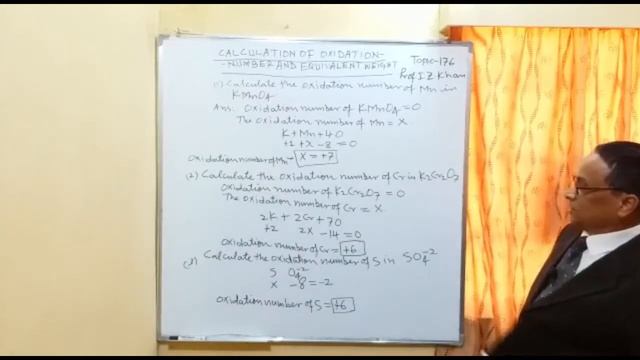 CALCULATION OF OXIDATION-
-NUMBER AND EQUIVALENT WEIGHT
Topic-176
Prof I Z Khan
(1) Calculate the oxidation number of Mn in
KMnO4
Ans: Oxidation number of KMnO4 = 0
The oxidation number of Mn = X
K + Mn + 4O
+1 + x - 8 = 0
Oxidation number of Mn = X = +7
(2) Calculate the oxidation number of Cr in K2Cr2O7
Oxidation number of K2Cr2O7 = 0
The Oxidation number of Cr = X
2K + 2Cr + 7O
+2 2X - 14 = 0
Oxidation number of Cr = +6
(3) Calculate the oxidation number of S in SO4-2
S O4-2
X - 8 = -2
Oxidation number of S = +6